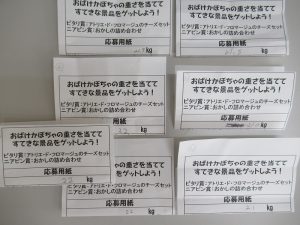 ピタリ賞：アトリエ・ド・フロマージュのチーズセット
ニアピン賞：おかしの詰め合わせ
応募用紙
kg
ピタリ賞：アトリエ・ド・フロマージュのチーズセット
ニアピン賞：おかしの詰め合わせ
応募用紙
おばけかぼちゃの重さを当てて
すてきな景品をゲットしよう！
ピタリ賞：アトリエ・ド・フロマージュのチーズセット
ニアピン賞：おかしの詰め合わせ
応募用紙
22 kg
おばけかぼちゃの重さを当てて
すてきな景品をゲットしよう！
ピタリ賞：アトリエ・ド・フロマージュのチーズセット
ニアピン賞：おかしの詰め合わせ
応募用紙
おばけかぼちゃの重さを当てて
すてきな景品をゲットしよう！
ピタリ賞：アトリエ・ド・フロマージュのチーズセット
ニアピン賞：おかしの詰め合わせ
応募用紙
22 kg
ちゃの重さを当てて
景品をゲットしよう！
・ド・フロマージュのチーズセット
ニアピン賞：おかしの詰め合わせ
応募用紙
22 kg
おばけかぼちゃの重さを当てて
すてきな景品をゲットしよう！
ピタリ賞：アトリエ・ド・フロマージュのチーズセット
ニアピン賞：おかしの詰め合わせ
応募用紙
21 kg